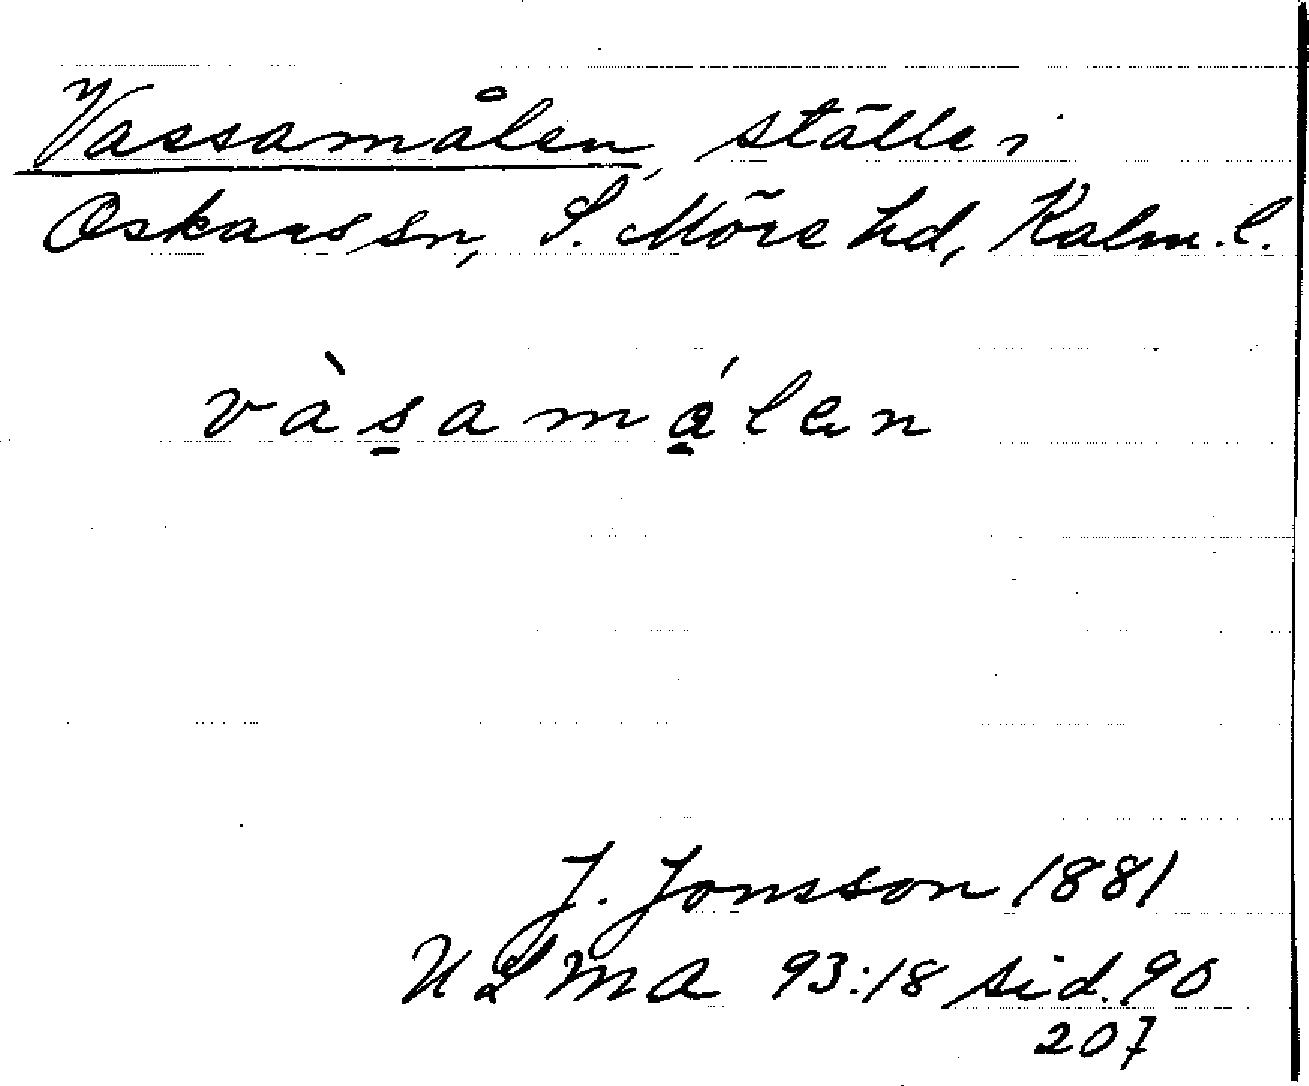 Vassamålen, ställe i
Oskars sn, S. Möre hd, Kalm. l.
vàsamálen
J. Jonsson 1881
ULMA 93:18 sid. 90
207